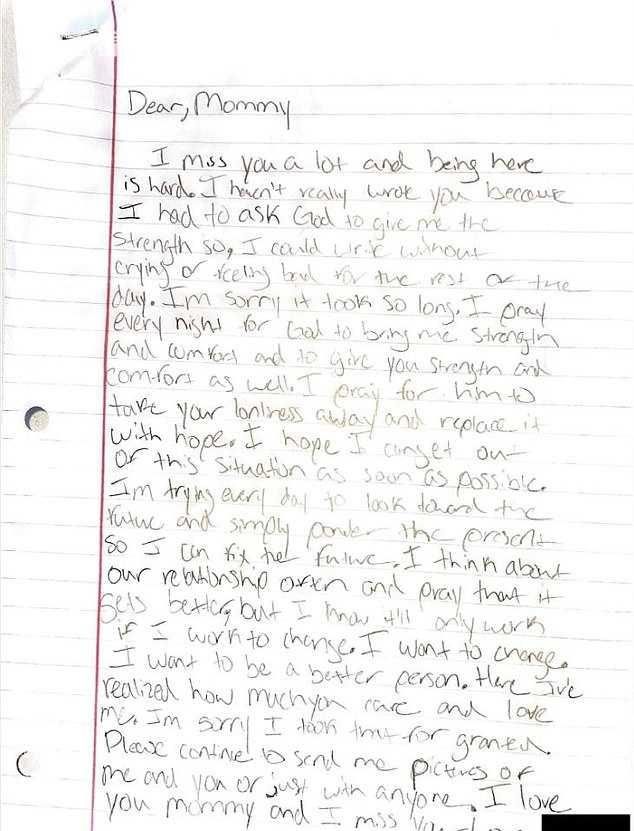 Dear, Mommy
I miss you a lot and being here
is hard. I haven't really wrote you because
I had to ask God to give me the
strength so, I could write without
crying or feeling bad for the rest of the
day. I'm sorry it took so long. I pray
every night for God to bring me strength
and comfort and to give you strength and
comfort as well. I pray for him to
take your lonliness away and replace it
with hope. I hope I can get out
of this situation as soon as possible.
I'm trying every day to look toward the
future and simply ponder the present
so I can fix the future. I think about
our relationship often and pray that it
gets better, but I know it'll only work
if I work to change. I want to change.
I want to be a better person. Here I've
realized how much you care and love
me. I'm sorry I took that for granted.
Please continue to send me pictures of
me and you or just with anyone. I love
you mommy and I miss you